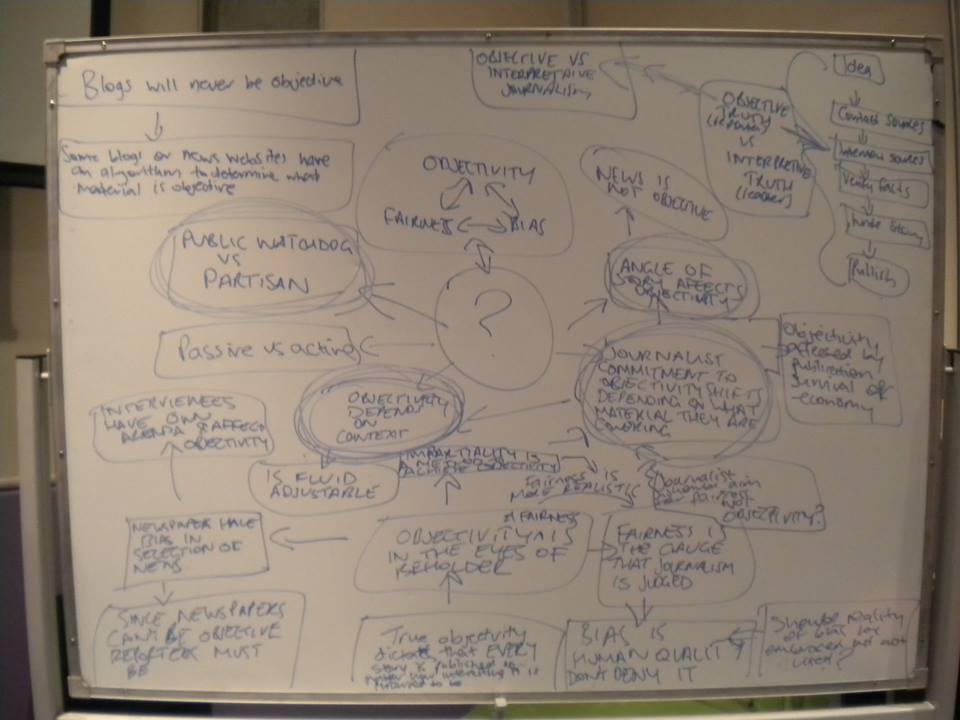 Blogs will never be objective
Some blogs or news websites have
an algorithm to determine what
material is objective
OBJECTIVE VS
INTERPRETAIVE
JOURNALISM
OBJECTIVE
TRUTH
(reporter)
VS
INTERPRETIVE
TRUTH
(reader)
Idea
Contact sources
Interview sources
Verify facts
Publish
OBJECTIVITY
FAIRNESS
BIAS
NEWS IS
NOT OBJECTIVE
PUBLIC WATCHDOG
VS
PARTISAN
?
ANGLE OF
STORY AFFECTS
OBJECTIVITY
Passive vs acting
JOURNALIST
COMMITMENT TO
OBJECTIVITY SHIFTS
DEPENDING ON WHAT
MATERIAL THEY ARE
COVERING
Objectivity
affected by
publication
survival or
economy
OBJECTIVITY
DEPENDS
ON
CONTEXT
INTERVIEWEES
HAVE OWN
AGENDA & AFFECT
OBJECTIVITY
IS FLUID
ADJUSTABLE
IMPARTIALITY IS
A METHOD TO
ACHIEVE OBJECTIVITY
Fairness IS
MORE REALISTIC
Journalist
should aim
for fairness
NOT
OBJECTIVITY?
NEWSPAPER HAVE
BIAS IN
SELECTION OF
NEWS
FAIRNESS
OBJECTIVITY IS
IN THE EYES OF
BEHOLDER
FAIRNESS IS
THE GAUGE
THAT JOURNALISM
IS JUDGED
SINCE NEWSPAPERS
CAN'T BE OBJECTIVE
REPORTERS MUST
BE
True objectivity
dictates that EVERY
story is published no
matter how interesting it is
BIAS IS
HUMAN QUALITY
DON'T DENY IT
Should reality
of bias be
embraced not